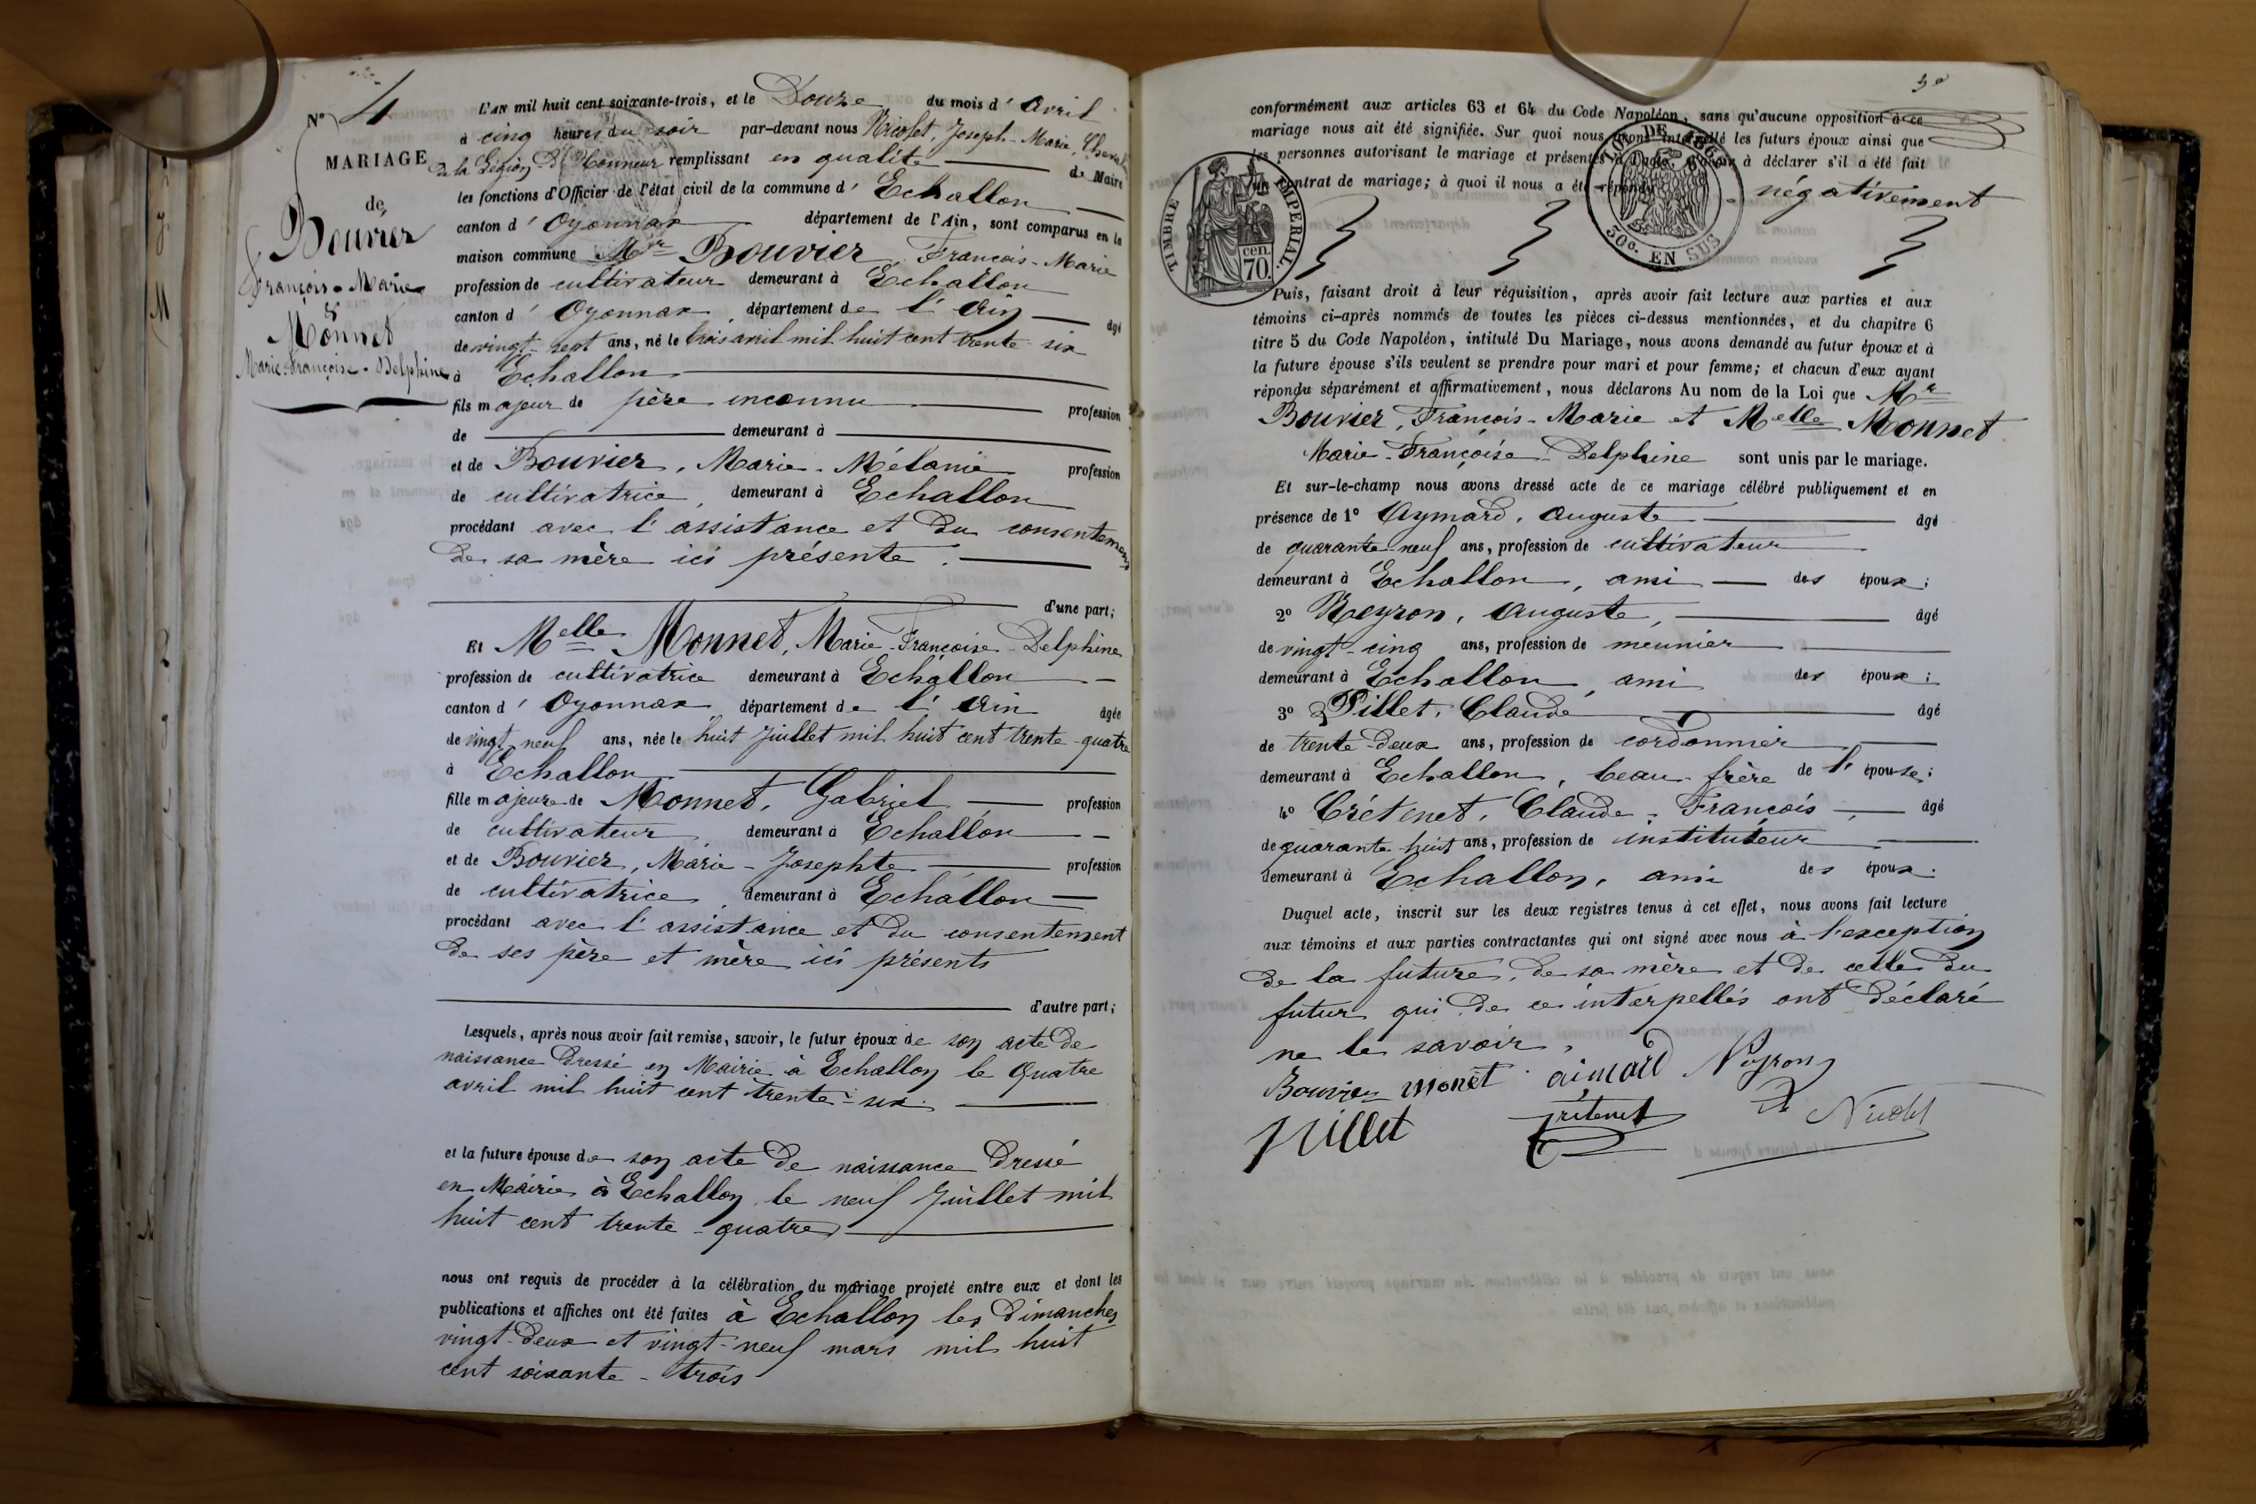 Nº 4
MARIAGE
de
Bouvier
François-Marie
&
Monnet
Marie-Françoise-Delphine
L'AN mil huit cent soixante-trois, et le Douze du mois d' Avril
à cinq heures du soir par-devant nous Nicolet, Joseph-Marie, Cheval
de la Légion d'Honneur remplissant en qualité de Maire
les fonctions d'Officier de l'état civil de la commune d' Echallon
canton d' Oyonnax département de l'Ain, sont comparus en la
maison commune Mr Bouvier, François-Marie
profession de cultivateur demeurant à Echallon
canton d' Oyonnax, département de l'Ain âgé
de vingt-sept ans, né le trois avril mil huit cent trente six
à Echallon
fils majeur de père inconnu profession
de demeurant à
et de Bouvier, Marie-Mélanie profession
de cultivatrice, demeurant à Echallon
procédant avec l'assistance et du consentement
de sa mère ici présente.
d'une part;
Et Melle Monnet, Marie-Françoise-Delphine
profession de cultivatrice demeurant à Echallon
canton d' Oyonnax département de l'Ain âgée
de vingt-neuf ans, née le huit Juillet mil huit cent trente-quatre
à Echallon
fille majeure de Monnet, Gabriel profession
de cultivateur demeurant à Echallon
et de Bouvier, Marie-Josephte profession
de cultivatrice, demeurant à Echallon
procédant avec l'assistance et du consentement
de ses père et mère ici présents
d'autre part;
Lesquels, après nous avoir fait remise, savoir, le futur époux de son acte de
naissance dressé en Mairie à Echallon le quatre
avril mil huit cent trente-six.
et la future épouse de son acte de naissance dressé
en Mairie à Echallon le neuf Juillet mil
huit cent trente-quatre
nous ont requis de procéder à la célébration du mariage projeté entre eux et dont les
publications et affiches ont été faites à Echallon les dimanches
vingt-deux et vingt-neuf mars mil huit
cent soixante-trois
conformément aux articles 63 et 64 du Code Napoléon, sans qu'aucune opposition à ce
mariage nous ait été signifiée. Sur quoi nous avons interpellé les futurs époux ainsi que
les personnes autorisant le mariage et présentes à déclarer s'il a été fait
un contrat de mariage; à quoi il nous a été répondu négativement
TIMBRE IMPERIAL.
cen.
70.
LOI DE 1862
50c. EN SUS
Puis, faisant droit à leur réquisition, après avoir fait lecture aux parties et aux
témoins ci-après nommés de toutes les pièces ci-dessus mentionnées, et du chapitre 6
titre 5 du Code Napoléon, intitulé Du Mariage, nous avons demandé au futur époux et à
la future épouse s'ils veulent se prendre pour mari et pour femme; et chacun d'eux ayant
répondu séparément et affirmativement, nous déclarons Au nom de la Loi que Mr
Bouvier, François-Marie et Melle Monnet
Marie-Françoise-Delphine sont unis par le mariage.
Et sur-le-champ nous avons dressé acte de ce mariage célébré publiquement et en
présence de 1º Aymard, Auguste âgé
de quarante-neuf ans, profession de cultivateur
demeurant à Echallon, ami des époux;
2º Neyron, Auguste, âgé
de vingt-cinq ans, profession de meunier
demeurant à Echallon, ami des époux;
3º Pillet, Claude âgé
de trente-deux ans, profession de cordonnier
demeurant à Echallon, beau-frère de l'épouse;
4º Crétenet, Claude-François âgé
de quarante-huit ans, profession de instituteur
demeurant à Echallon, ami des époux.
Duquel acte, inscrit sur les deux registres tenus à cet effet, nous avons fait lecture
aux témoins et aux parties contractantes qui ont signé avec nous à l'exception
de la future, de sa mère et de celle du
futur qui de ce interpellés ont déclaré
ne le savoir.
Bouvier monet aimard Neyron
pillet Crétenet Nicolet